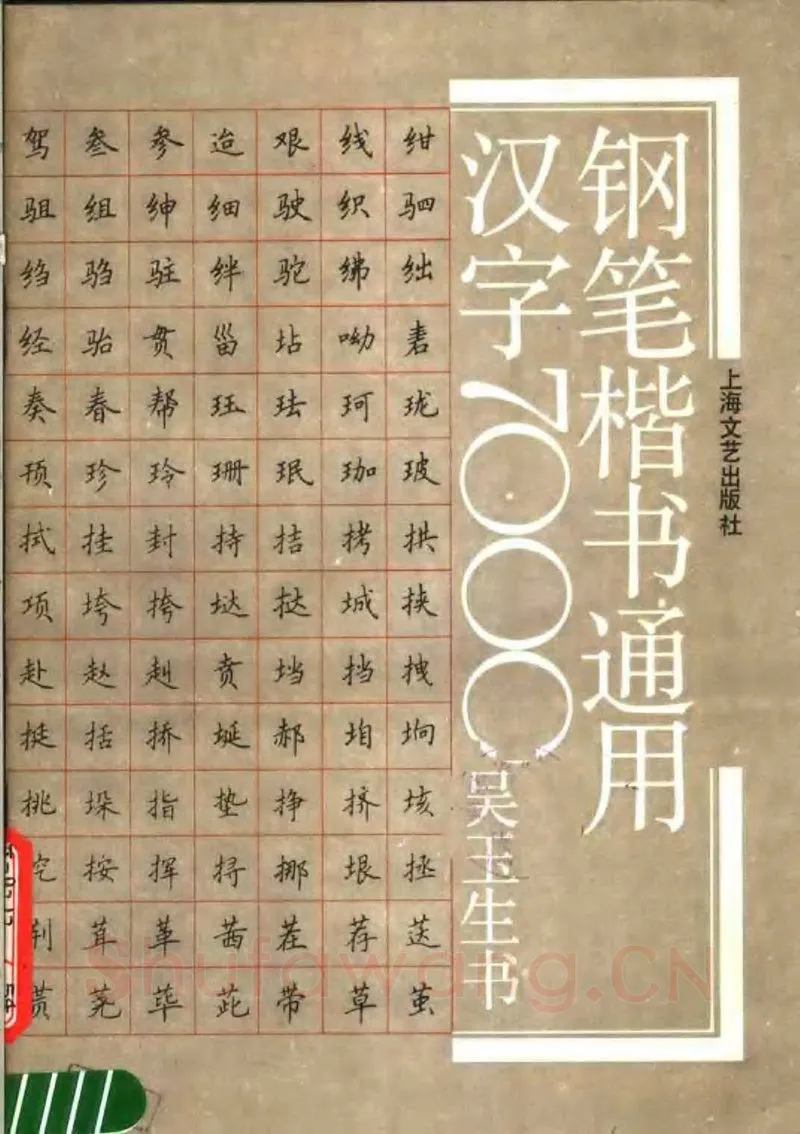 钢笔楷书通用
汉字7000
吴玉生书
上海文艺出版社
驾叁参迨艰线绀
驵组绅细驶织驷
绉驺驻绊驼绋绌
经骀贯甾坫呦砉
奏春帮珏珐珂珑
顸珍玲珊珉珈玻
拭挂封持拮拷拱
项垮挎垯挞城挟
赴赵赳贲垱挡拽
挺括挢埏郝垍垧
挑垛指垫挣挤垓
挖按挥挦挪垠拯
茸革茜茬荐荙
贳荛荜茈带草茧
shufawang.CN